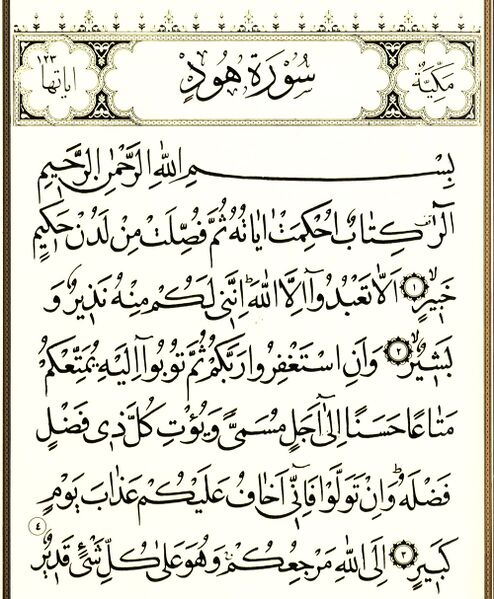 مَكِّيَّةٌ سُورَةُ هُودٍ اٰيَاتُهَا ١٢٣
بِسْمِ اللّٰهِ الرَّحْمٰنِ الرَّحٖيمِ
الٓرٰ كِتَابٌ اُحْكِمَتْ اٰيَاتُهُ ثُمَّ فُصِّلَتْ مِنْ لَدُنْ حَكٖيمٍ
خَبٖيرٍۙ ﴿١﴾ اَلَّا تَعْبُدُٓوا اِلَّا اللّٰهَۜ اِنَّنٖى لَكُمْ مِنْهُ نَذٖيرٌ وَ
بَشٖيرٌۙ ﴿٢﴾ وَاَنِ اسْتَغْفِرُوا رَبَّكُمْ ثُمَّ تُوبُٓوا اِلَيْهِ يُمَتِّعْكُمْ
مَتَاعًا حَسَنًا اِلٰٓى اَجَلٍ مُسَمًّى وَيُؤْتِ كُلَّ ذٖى فَضْلٍ
فَضْلَهُۜ وَاِنْ تَوَلَّوْا فَاِنّٖٓى اَخَافُ عَلَيْكُمْ عَذَابَ يَوْمٍ
كَبٖيرٍ ﴿٣﴾ اِلَى اللّٰهِ مَرْجِعُكُمْۚ وَهُوَ عَلٰى كُلِّ شَىْءٍ قَدٖيرٌ ﴿٤﴾